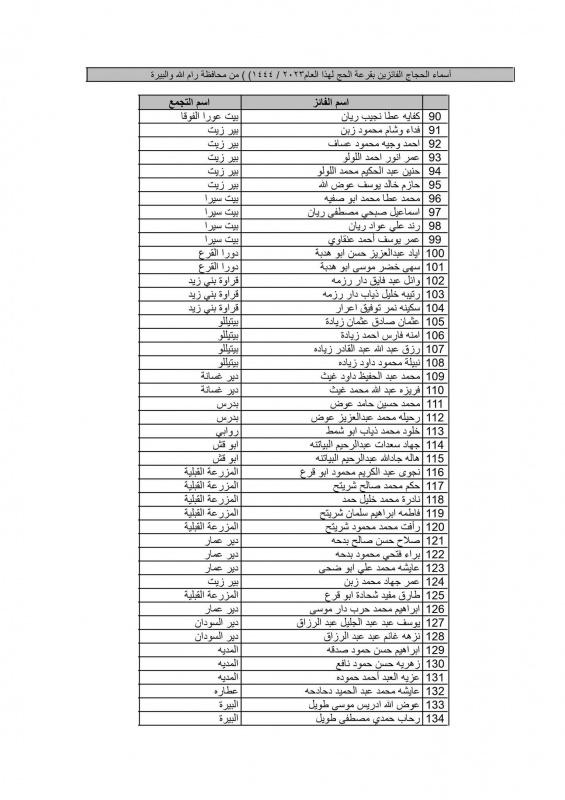 أسماء الحجاج الفائزين بقرعة الحج لهذا العام٢٠٢٣ / ١٤٤٤( ) من محافظة رام الله والبيرة
اسم الفائز اسم التجمع
90 كفايه عطا نجيب ريان بيت عورا الفوقا
91 فداء وشام محمود زبن بير زيت
92 احمد وجيه محمود عساف بير زيت
93 عمر انور احمد اللولو بير زيت
94 حنين عبد الحكيم محمد اللولو بير زيت
95 حازم خالد يوسف عوض الله بير زيت
96 محمد عطا محمد ابو صفيه بيت سيرا
97 اسماعيل صبحي مصطفى ريان بيت سيرا
98 رند علي عواد ريان بيت سيرا
99 عمر يوسف أحمد عنقاوي بيت سيرا
100 اياد عبدالعزيز حسن ابو هدبة دورا القرع
101 سهى خضر موسى ابو هدبة دورا القرع
102 وائل عبد فايق دار رزمه قراوة بني زيد
103 رتيبه خليل ذياب دار رزمه قراوة بني زيد
104 سكينه نمر توفيق اعرار قراوة بني زيد
105 عثمان صادق عثمان زيادة بيتيللو
106 امنه فارس احمد زيادة بيتيللو
107 رزق عبد الله عبد القادر زياده بيتيللو
108 نبيلة محمود داود زياده بيتيللو
109 محمد عبد الحفيظ داود غيث دير غسانة
110 فريزه عبد الله محمد غيث دير غسانة
111 محمد حسين حامد عوض بدرس
112 رحيله محمد عبدالعزيز عوض بدرس
113 خلود محمد ذياب ابو شمط روابي
114 جهاد سعدات عبدالرحيم البياتنه ابو قش
115 هاله جادالله عبدالرحيم البياتنه ابو قش
116 نجوى عبد الكريم محمود ابو قرع المزرعة القبلية
117 حكم محمد صالح شريتح المزرعة القبلية
118 نادرة محمد خليل حمد المزرعة القبلية
119 فاطمه ابراهيم سلمان شريتح المزرعة القبلية
120 رأفت محمد محمود شريتح المزرعة القبلية
121 صلاح حسن صالح بدحه دير عمار
122 براء فتحي محمود بدحه دير عمار
123 عايشه محمد علي ابو ضحى دير عمار
124 عمر جهاد محمد زبن بير زيت
125 طارق مفيد شحادة ابو قرع المزرعة القبلية
126 ابراهيم محمد حرب دار موسى دير عمار
127 يوسف عبد عبد الجليل عبد الرزاق دير السودان
128 نزهه غانم عبد عبد الرزاق دير السودان
129 ابراهيم حسن حمود صدقه المديه
130 زهريه حسن حمود نافع المديه
131 عزيه العبد أحمد حموده المديه
132 عايشه محمد عبد الحميد دحادحه عطاره
133 عوض الله ادريس موسى طويل البيرة
134 رحاب حمدي مصطفى طويل البيرة